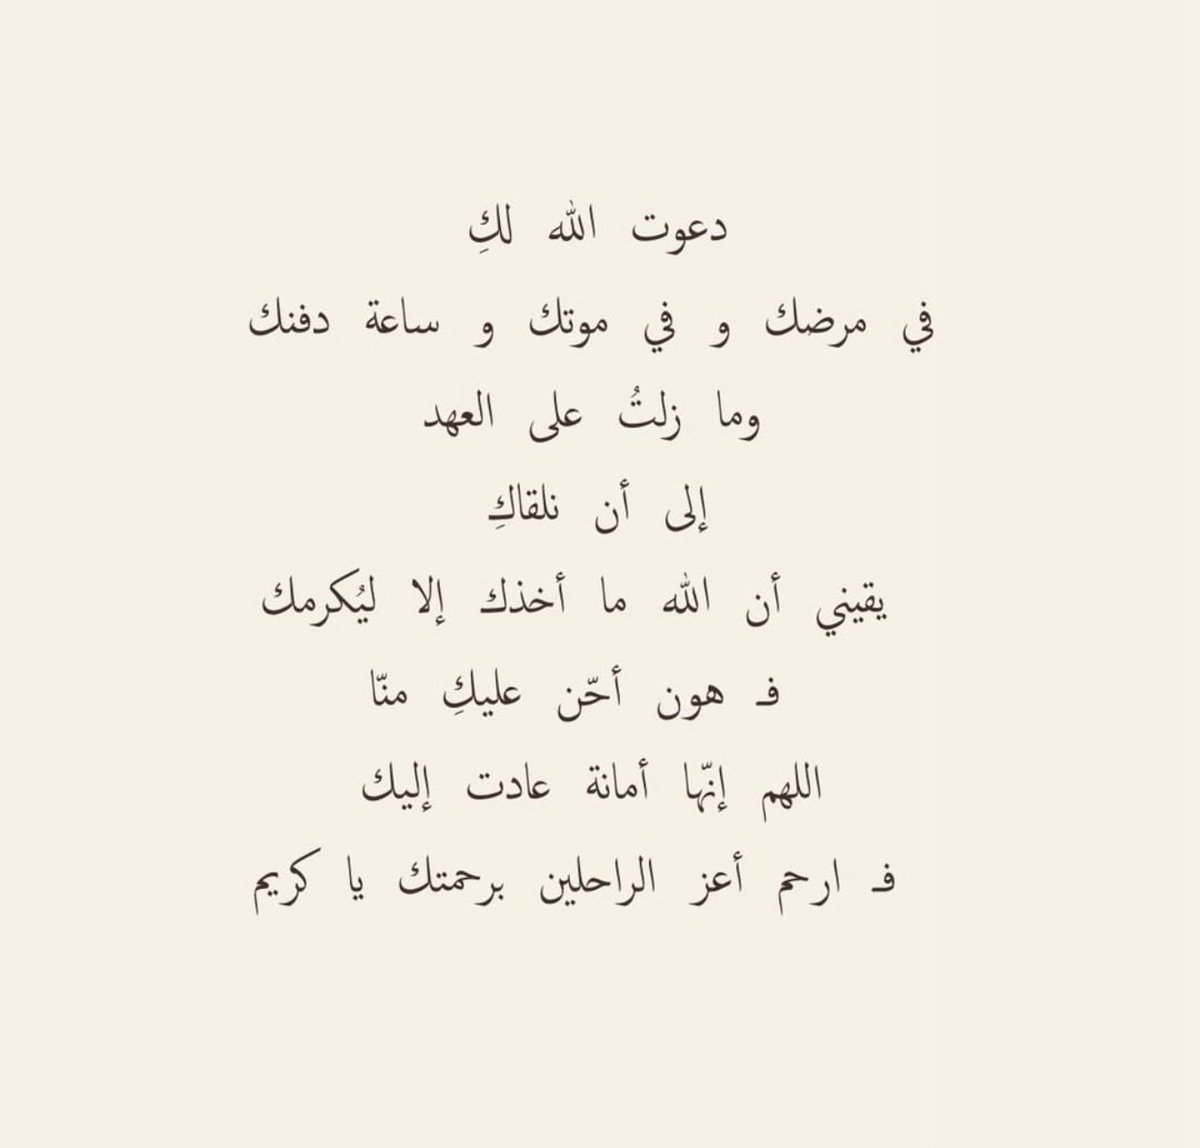 دعوت الله لكِ
في مرضك و في موتك و ساعة دفنك
وما زلتُ على العهد
إلى أن نلقاكِ
يقيني أن الله ما أخذك إلا ليُكرمك
فـ هون أحّن عليكِ منّا
اللهم إنّها أمانة عادت إليك
فـ ارحم أعز الراحلين برحمتك يا كريم